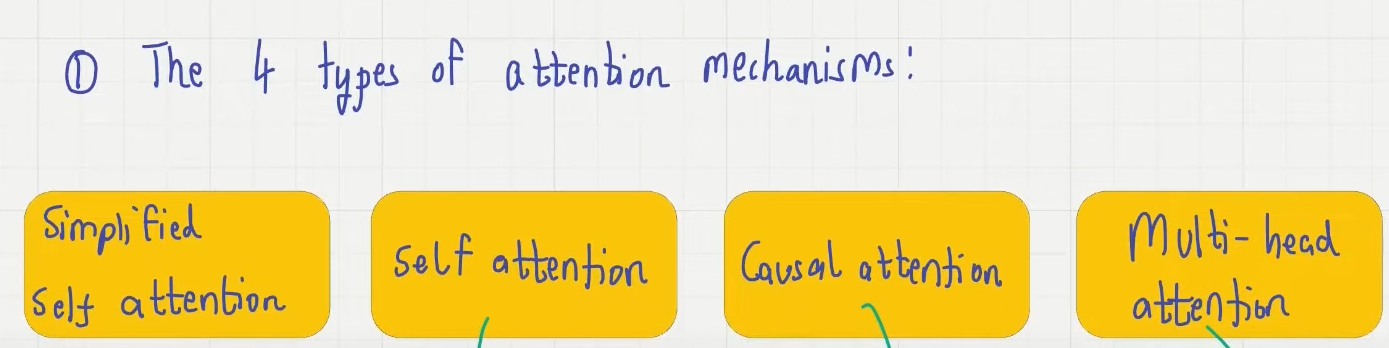 ① The 4 types of attention mechanisms:
Simplified
Self attention
Self attention
Causal attention
Multi-head
attention